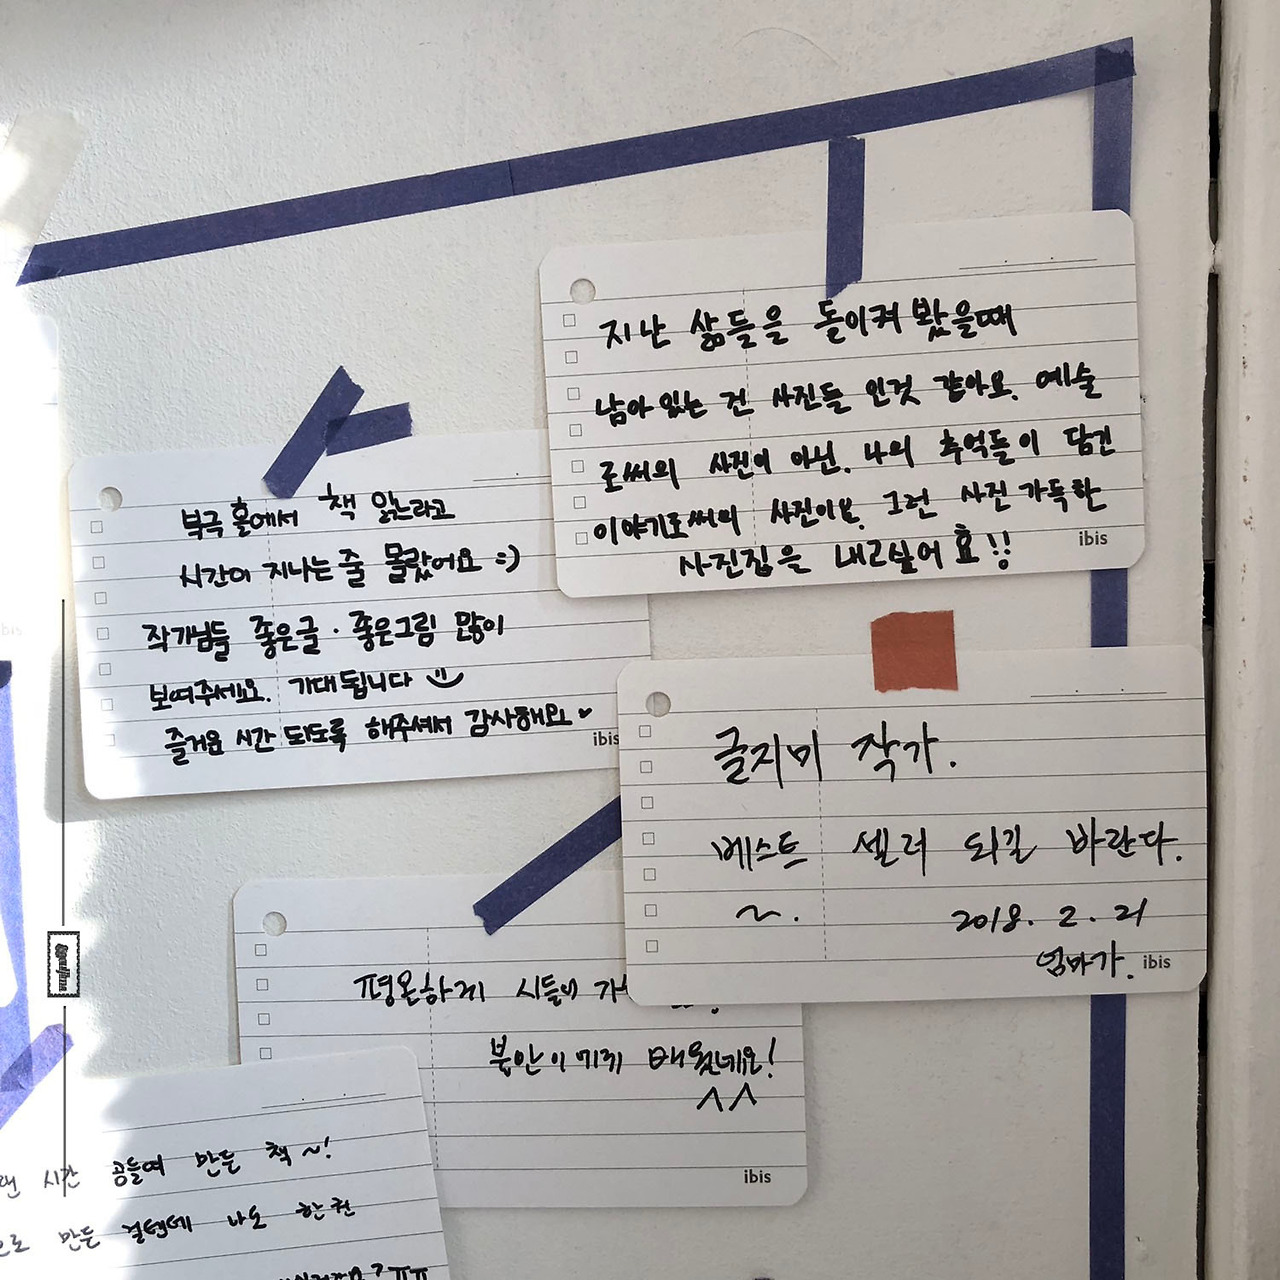 지난 삶들을 돌이켜 봤을때
남아 있는 건 사진들 인것 같아요. 예술
로써의 사진이 아닌, 나의 추억들이 담긴
이야기로써의 사진이요. 그런 사진 가득한
사진집을 내고싶어요!!
ibis
북극홀에서 책 읽느라고
시간이 지나는 줄 몰랐어요 :)
작가님들 좋은글 · 좋은그림 많이
보여주세요. 기대됩니다
즐거운 시간 되도록 해주셔서 감사해요
ibis
글지미 작가.
베스트 셀러 되길 바란다.
~.
2018. 2. 21
엄마가.
ibis
평온하게 시들어 가
불안이
배웠네요!
^^
ibis
시간 공들여 만든 책~!
만든 걸텐데 나도 한권
ㅠㅠ